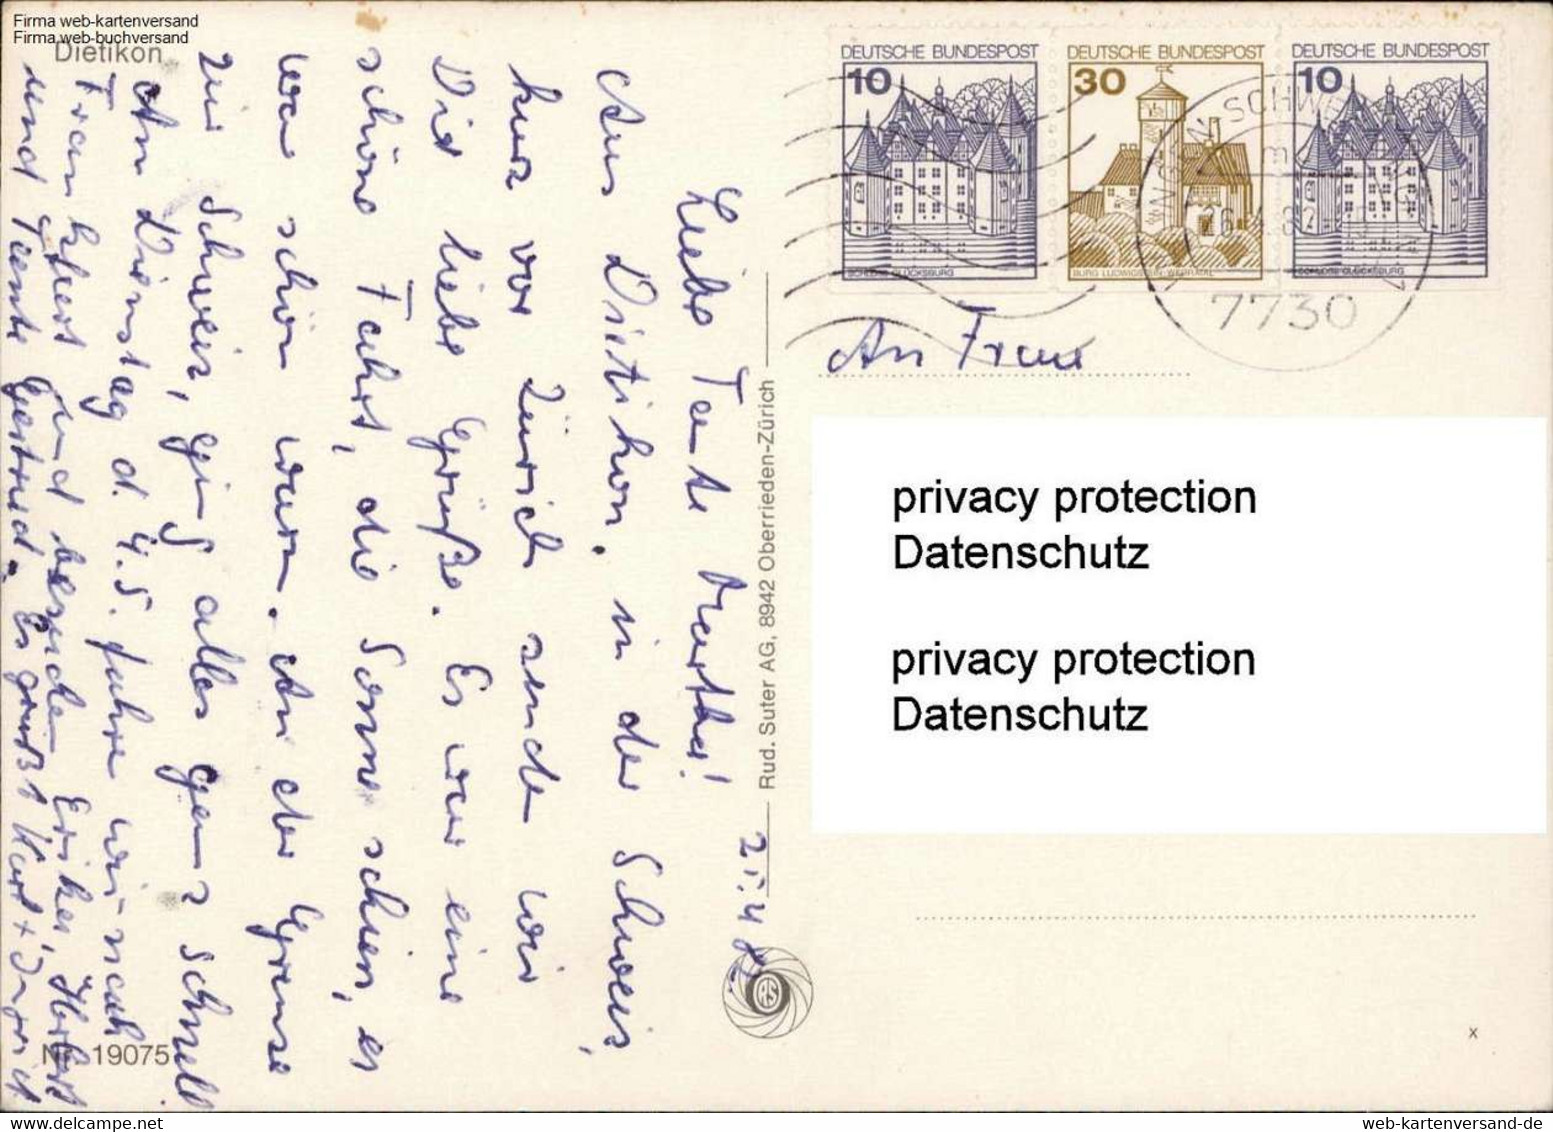 Firma web-kartenversand
Firma web-buchversand
Dietikon
25.4.82.
Liebe Tante Martha!
Aus Dietikon, in der Schweiz,
kurz vor Zürich senden wir
Dir liebe Grüße. Es war eine
schöne Fahrt, die Sonne schien, es
war schön warm. An der Grenze
zur Schweiz, ging alles ganz schnell
Am Dienstag d. 4.5. fahren wir nach
Frankfurt und besuchen Erika, Herbert
und Tante Gertrud. Es grüßt Kurt + Ingrid
Nr. 19075
Rud. Suter AG, 8942 Oberrieden-Zürich
RS
DEUTSCHE BUNDESPOST
10
SCHLOSS GLÜCKSBURG
DEUTSCHE BUNDESPOST
30
BURG LUDWIGSTEIN·WERRATAL
DEUTSCHE BUNDESPOST
10
SCHLOSS GLÜCKSBURG
26.4.82
7730
An Frau
privacy protection
Datenschutz
privacy protection
Datenschutz
x
web-kartenversand-de